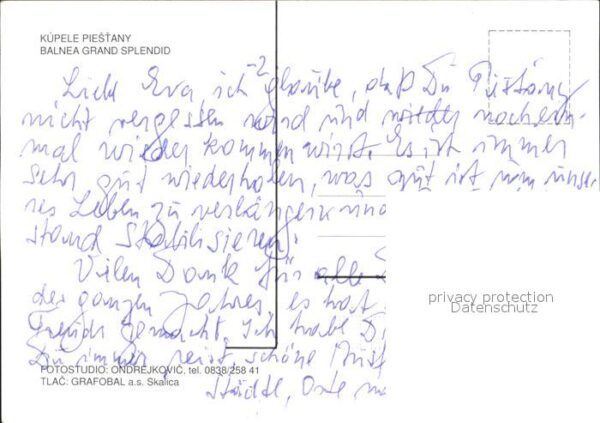 KÚPELE PIEŠŤANY
BALNEA GRAND SPLENDID
Liebe Eva ich glaube, daß Du Pieštany
nicht vergessen wird und wieder noch ein-
mal wieder kommen wirst. Es ist immer
sehr gut wiederholen, was gut ist um unse-
res Leben zu verlängern und
stand stabilisieren.
Vielen Dank für alle
der ganzen Jahres, es hat
Freude gemacht. Ich habe D
Du immer reist, schöne
Städte, Orte
privacy protection
Datenschutz
FOTOSTUDIO: ONDREJKOVIČ. tel. 0838/258 41
TLAČ: GRAFOBAL a.s. Skalica